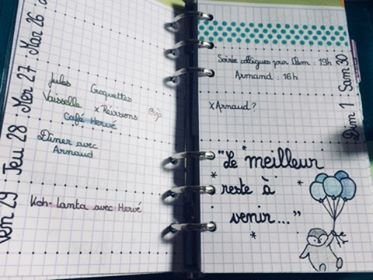 Mar 26
Mer 27
Jules
Croquettes
Vaisselle
x Réunions
Bijo
Café Hervé
Jeu 28
Dîner avec
Arnaud
Ven 29
Koh-Lanta avec Hervé
Sam 30
Soirée collègues pour Clém : 19h
Armand : 16h
Dim 1
x Arnaud ?
"Le meilleur
reste à
venir..."